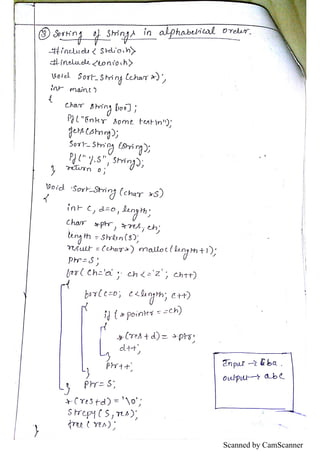 ③ Sorting of Strings in alphabetical order.
#include < Stdio.h>
#include <conio.h>
Void Sort_String (char *);
int main( )
{
char String [100];
Pf ("Enter Some text\n");
gets (String);
Sort_String (String);
Pf (" %s", String);
return 0;
}
Void Sort_String (char *s)
{
int c, d=0, length;
char *ptr, *res, ch;
length = Strlen(s);
result = (char*) malloc (length+1);
Ptr = S;
for( ch='a'; ch <= 'z'; ch++)
{
for(c=0; c<length; c++)
{
if ( * pointer = =ch)
{
*(res+d) = *ptr;
d++;
}
Ptr++;
}
Ptr = S;
}
*(res+d) = '\0';
Strcpy (S, res);
free ( res);
}
Input → cba.
output → abc
Scanned by CamScanner